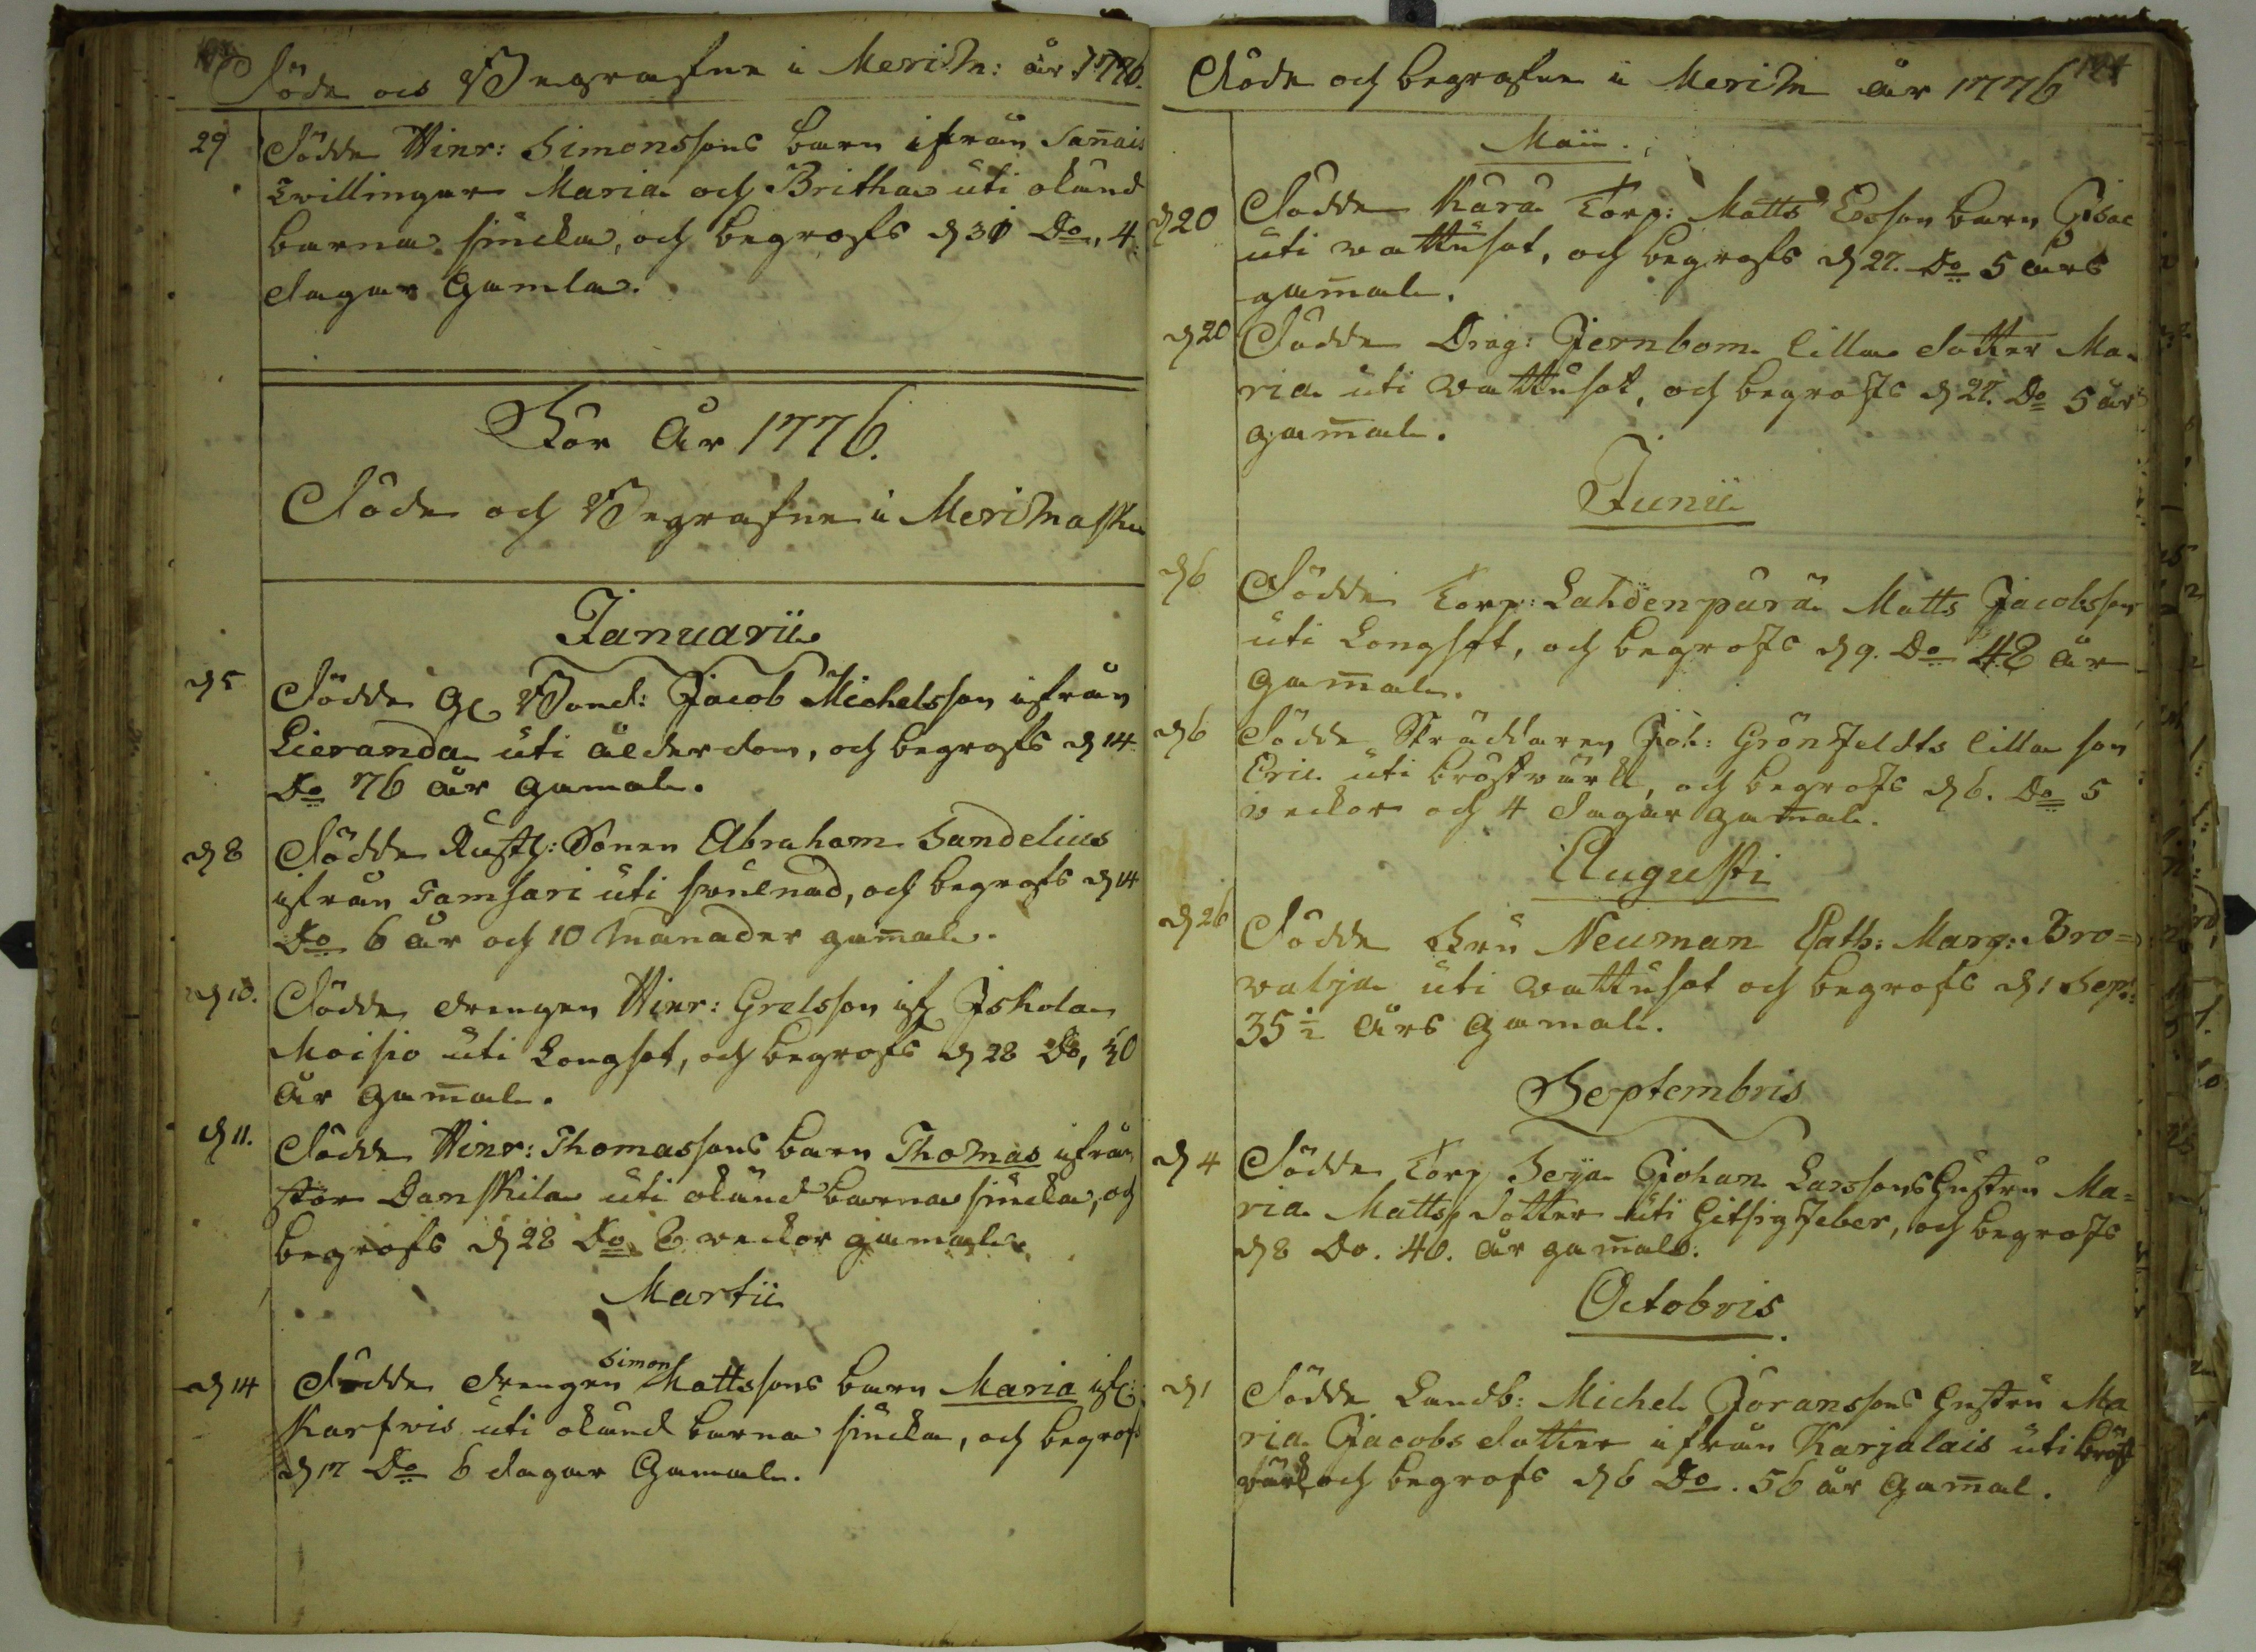 Döde och Begrafne i Merim: år 1776.
29 Dödde Hinr: Simonssons barn ifrån Sanais
tvillingar Maria och Britha uti okänd
barna siucka, och begrofs d 31 Do, 4.
dagar gamla.
För År 1776.
Döde och Begrafne i Merimasku
Januarii
d 5 Dödde Gl Bond: Jacob Michelsson ifrån
Lieranda uti ålderdom, och begrofs d 14
Do 76 år gamal.
d 8 Dödde Rusth: Sonen Abraham Sandelius
ifrån Tamsari uti swulnad, och begrofs d 14
Do 6 år och 10 månader gamal.
d 10. Dödde drengen Hinr: Grelsson if Iskola
Moisio uti Longsot, och begrofs d 28 Do,
år gamal.
d 11. Dödde Hinr: Thomassons barn Thomas ifrån
stor Danskila uti okänd barna siucka, och
begrofs d 28 Do 8 veckor gamal
Martii
d 14 Dödde drengen Simon Mattssons barn Maria if:
Karfwis uti okänd barna siucka, och begrofs
d 17 Do 6 dagar gamal.
Döde och begrafne i Merim år 1776 194
Maii.
d 20 Dödde Kära Torp: Matts Ersson barn Isac
uti vattusot, och begrofs d 27. Do 5 års
gamal.
d 20 Dödde Drag: Jernbom lilla dotter Ma-
ria uti vattusot, och begrofs d 27. Do 5 år
gamal.
Junii
d 6 Dödde Torp: Lahdenpärä Matts Jacobsson
uti Longsot, och begrofs d 9. Do 48 år
gamal.
d 6 Dödde Skräddaren Joh: Grönfeldts lilla son
Eric uti bröstvärk, och begrofs d 6. Do 5
veckor och 4 dagar gamal.
Augusti
d 26 Dödde Fru Neuman Cath: Marg: Bro=
valja uti vattusot och begrofs d 1 Sept:
35 1/2 års gamal.
Septembris
d 4 Dödde Torp Seija Johan Larssons hustru Ma=
ria Matts dotter uti hitsig feber, och begrofs
d 8 Do. 40. år gamal.
Octobris
d 1 Dödde Landb: Michel Jöranssons hustru Ma
ria Jacobs dotter ifrån Karjalais uti bröst
värk och begrofs d 6 Do. 56 år gamal.